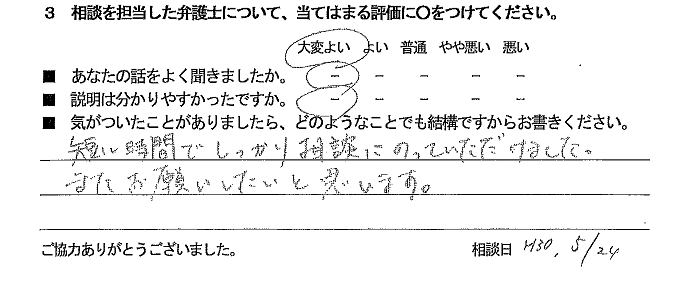 3 相談を担当した弁護士について、当てはまる評価に〇をつけてください。
大変よい よい 普通 やや悪い 悪い
■ あなたの話をよく聞きましたか。 － － － － －
■ 説明は分かりやすかったですか。 － － － － －
■ 気がついたことがありましたら、どのようなことでも結構ですからお書きください。
短い時間でしっかり相談にのっていただけました。
またお願いしたいと思います。
ご協力ありがとうございました。 相談日 H30, 5/24